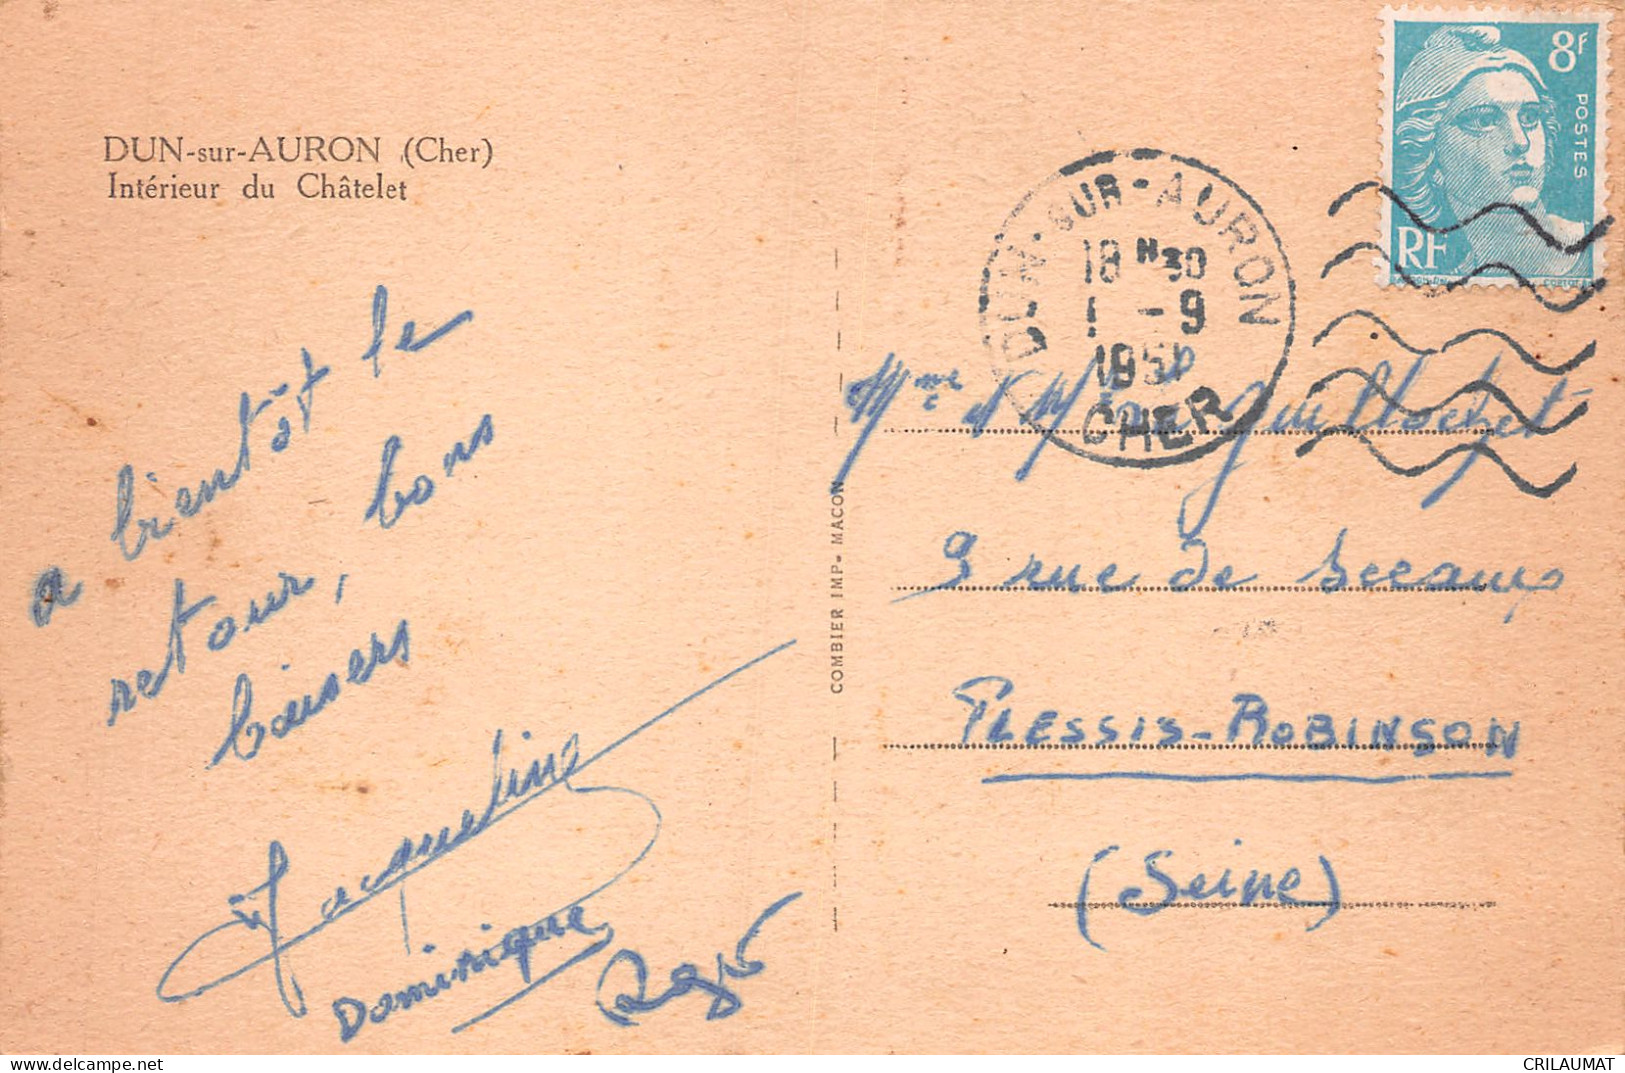 DUN-sur-AURON (Cher)
Intérieur du Châtelet
a bientôt le
retour, bons
baisers
Jacqueline
Dominique
COMBIER IMP- MACON
8F
POSTES
RF
DUN-SUR-AURON
18 H 30
1 -9
1951
CHER
Mme
9 rue de
PLESSIS-ROBINSON
(Seine)
CRILAUMAT